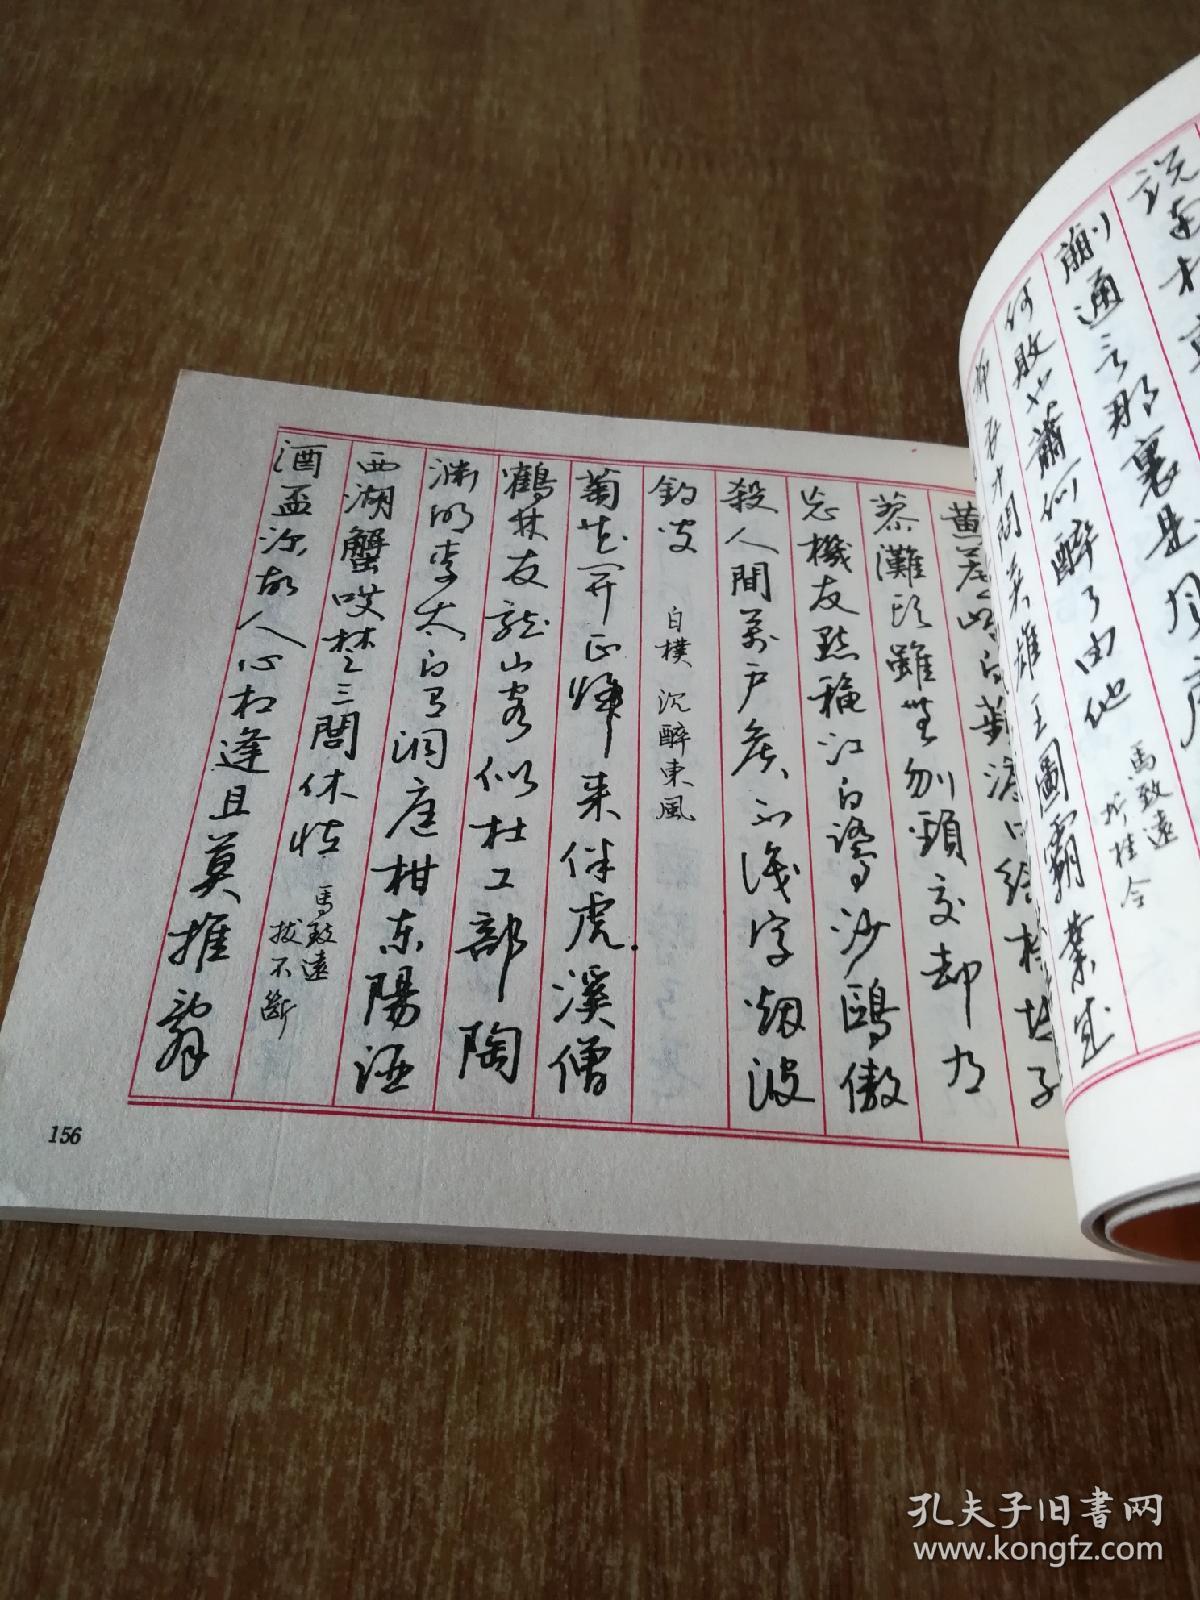 說
蒯通言那裏是風
何敗也蕭何醉了由他
馬致遠
折桂令
問英雄王圖霸業成
黃蘆岸白蘋渡口綠楊堤
蓼灘頭雖無刎頸交却有
忘機友點秋江白鷺沙鷗傲
殺人間萬戶侯不識字烟波
釣叟
白樸 沉醉東風
菊花開正歸來伴虎溪僧
鶴林友龍山客似杜工部陶
淵明李太白有洞庭柑東陽酒
西湖蟹哎楚三閭休怪
馬致遠
拔不斷
酒盃深故人心相逢且莫推辭
156
孔夫子旧书网
www.kongfz.com